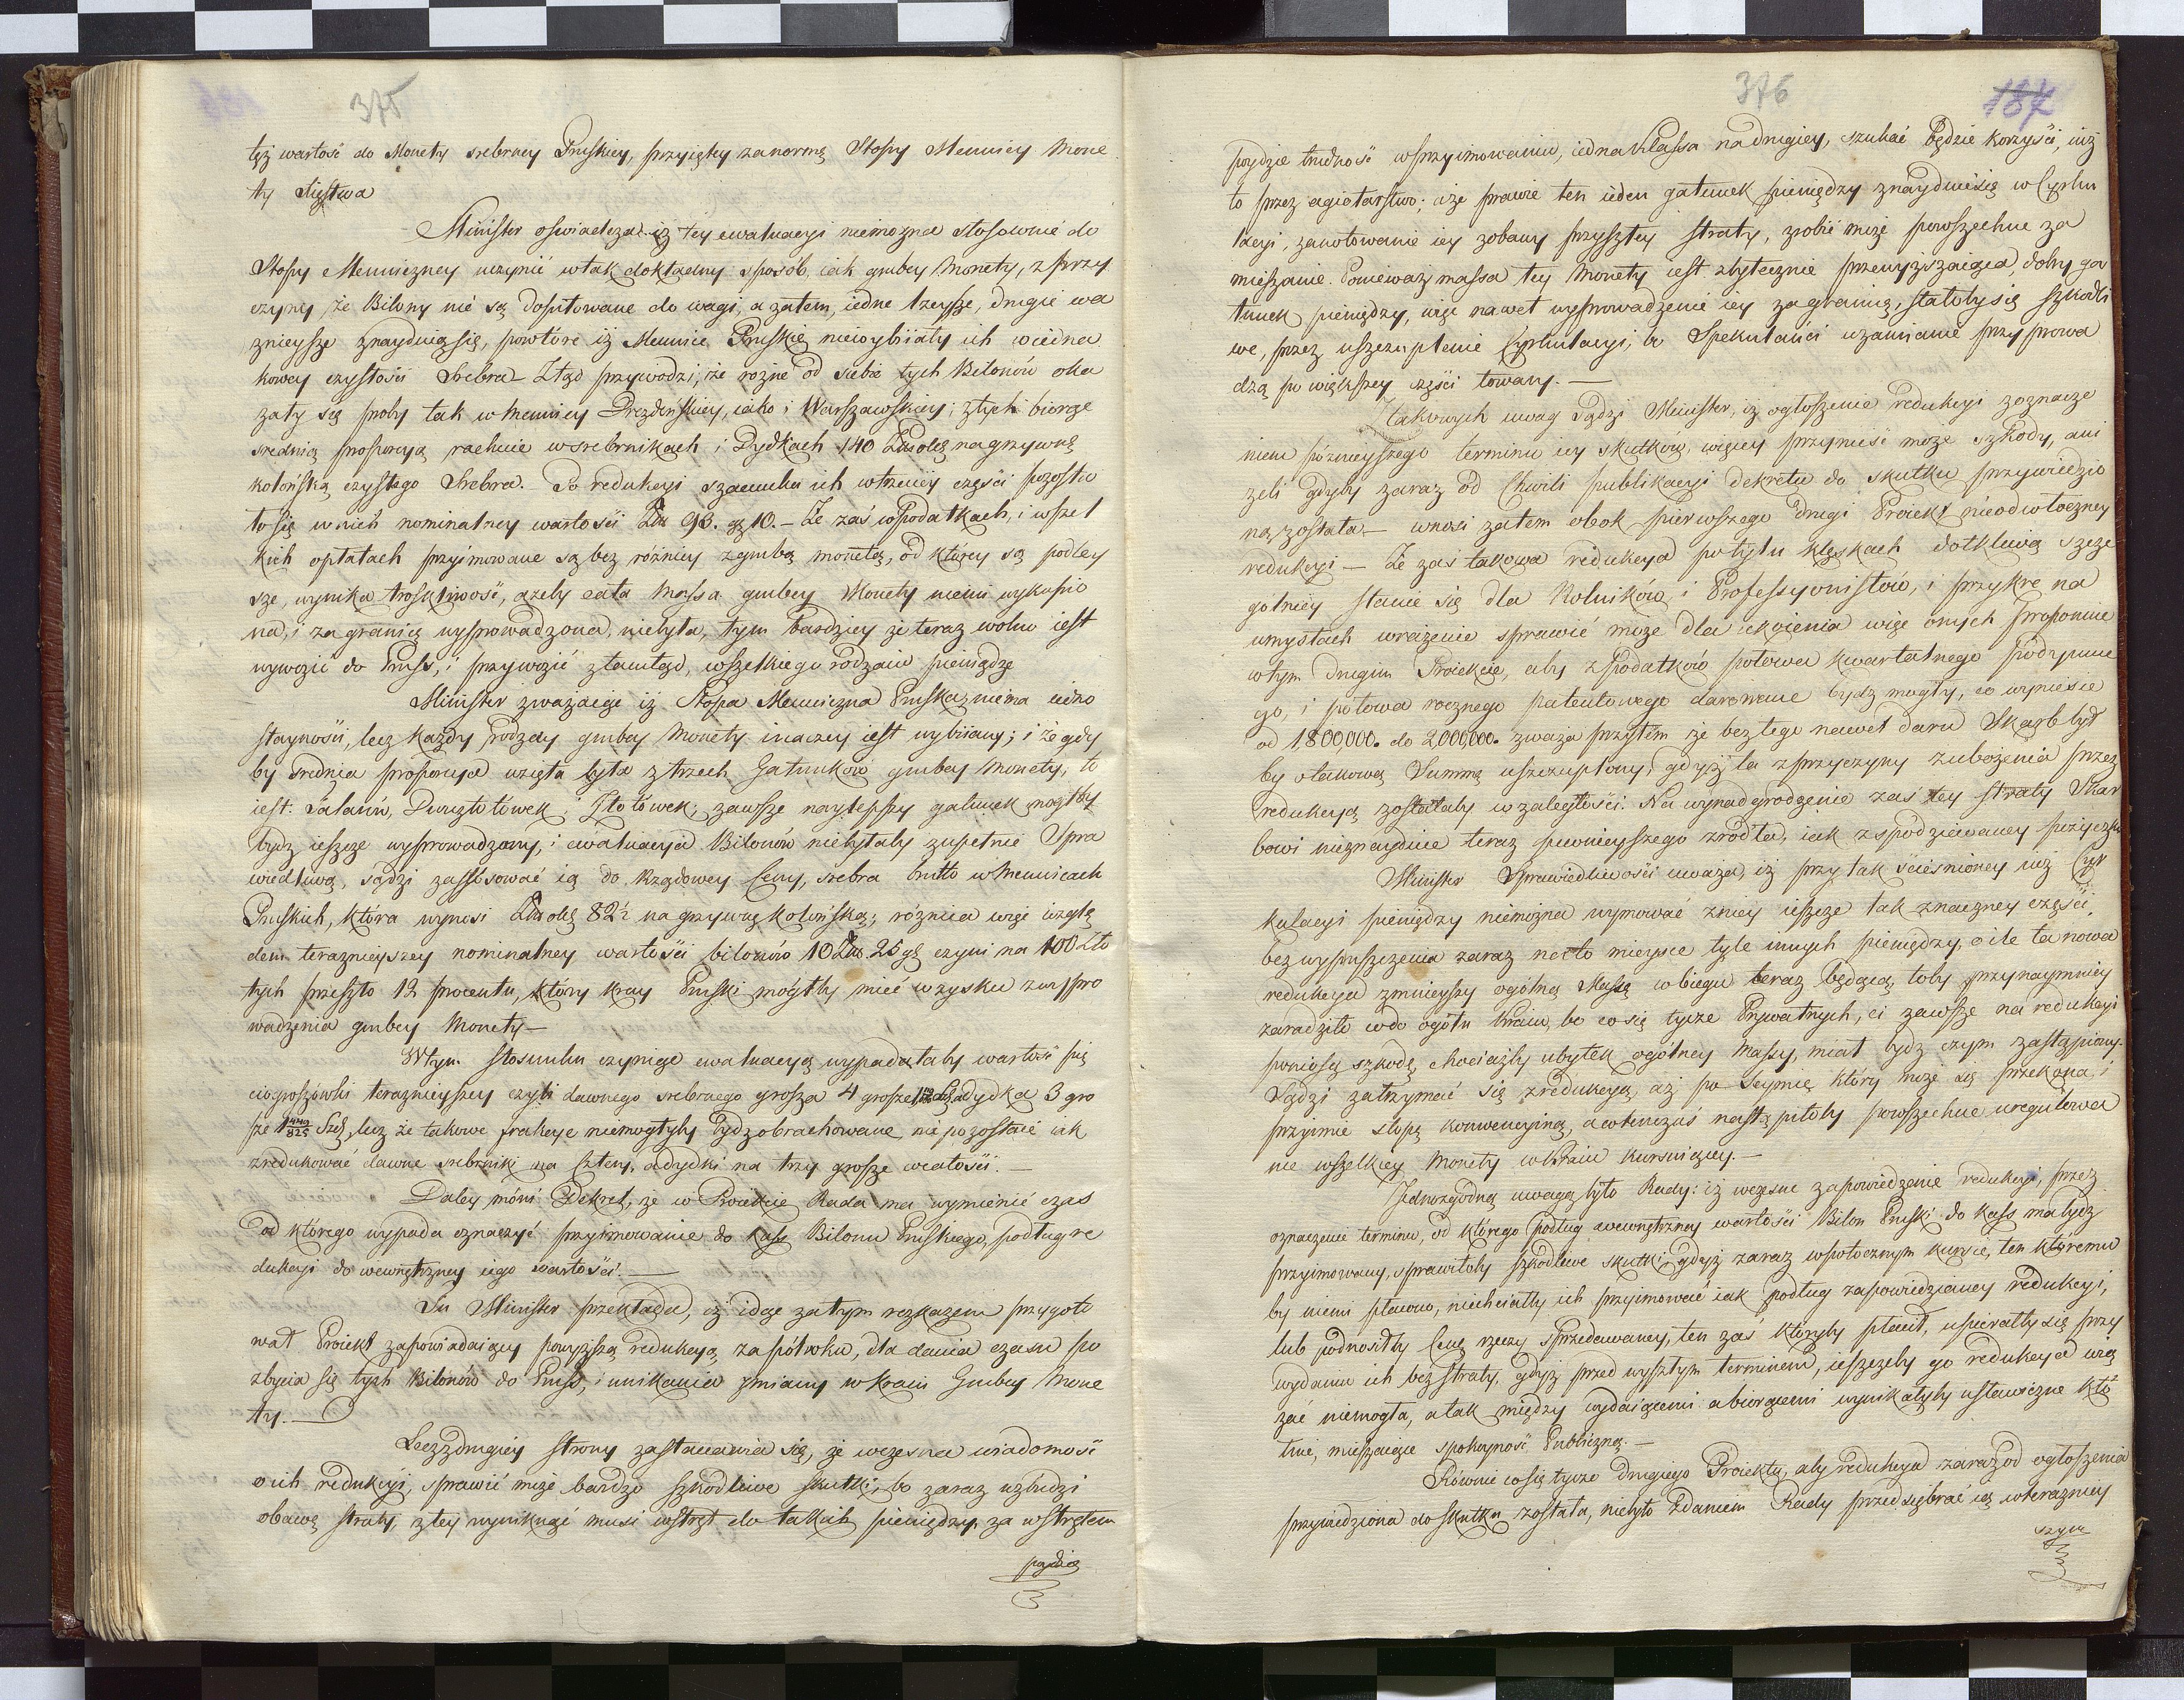 375
tęż wartość do Monety srebrney Pruskiey, przyięty za normę Stopy Mennicy Mone
ty Xięstwa
Minister oświadcza iż tey ewaluacyi niemożna stosownie do
Stopy Menniczney uczynić w tak dokładny sposób, iak grubey Monety, z przy
czyny że Bilony nie są dosutowane do wagi, a zatem, iedne lżeysze, drugie wa
żnieysze znayduią się, powtóre iż Mennice Pruskie niewybiiały ich w iedna
kowey czystości Srebra. Ztąd przywodzi, że rożne od siebie tych Bilonów oka
zały się proby tak w Mennicy Drezdeńskiey, iako i Warszawskiey; z tych biorąc
srednią proporcyą rachuie w srebrnikach i Dydkach 140 na grzywnę
kolońską czystego Srebra. Po redukcyi szacunku ich w trzeciey części pozosta
ło się w nich nominalney wartości 93. gr 10. – Że zaś w podatkach, i wszel
kich opłatach przyimowane są bez różnicy z grubą monetą, od którey są podley
sze, wynika troskliwość, ażeby cała Massa grubey Monety niemi wykupio
na, i za granicę wyprowadzona, niebyła, tym bardziey że teraz wolno iest
wywozić do Pruss, i przywozić ztamtąd, wszelkiego rodzaiu pieniądze
Minister zważaiąc iż Stopa Mennicza Pruska niema iedno
staynosci, lecz każdy rodzay grubey Monety inaczey iest wybiiany; i że gdy
by średnia proporcya wzięta była z trzech Gatunków grubey Monety, to
iest: Talarów, Dwuzłotówek i Złotówek, zawsze naylepszy gatunek mogłby
bydz ieszcze wyprowadzony, i ewaluacya Bilonów niebyłaby zupełnie Spra
wiedliwą, sądzi zastosować ią do Rządowey Ceny, srebra brutto w Mennicach
Pruskich, która wynosi 82½ na grzywnę kolońską; różnica więc wzglę
dem teraznieyszey nominalney wartości bilonów 10 25 gr czyni na 100 Zło
tych przeszło 12 procentu, który kray Pruski mógłby mieć w zysku z wypro
wadzenia grubey Monety –
W tym stosunku czyniąc ewaluacyą wypadałaby wartość pię
ciogroszówki teraznieyszey czyli dawnego srebrnego grosza 4 grosze dydka 3 gro
sze lecz że takowe frakcye niemogłyby bydz obrachowane, nie pozostaie iak
zredukować dawne srebrniki na Cztery, a dydki na trzy grosze wartości. –
Daley mówi Dekret, że w Proiekcie Rada ma wymienić czas
od którego wypada oznaczyć przyimowanie do Kass Bilonu Pruskiego, podług re
dukcyi do wewnętrzney iego wartości. –
Tu Minister przekłada, iż idąc za tym rozkazem przygoto
wał Proiekt zapowiadaiący powyższą redukcyą, za pół roku, dla dania czasu po
zbycia się tych Bilonów do Pruss, i unikania zmiany w kraiu Grubey Mone
ty. –
Lecz z drugiey strony zastanawia się, że wczesna wiadomość
o ich redukcyi, sprawić może bardzo szkodliwe skutki, bo zaraz wzbudzi
obawę straty, z tey wyniknąć musi wstręt do takich pieniędzy. za wstrętem
poydzie
376
187
poydzie trudność w przyimowaniu, iedna Klassa na drugiey, szukać będzie korzyści, iuż
to przez agiotarstwo; a że prawie ten ieden gatunek pieniędzy znayduie się w Cyrku
lacyi, zanotowanie iey z obawy przyszłey straty, zrobić może powszechne za
mieszanie. Ponieważ massa tey Monety iest zbytecznie przewyższaiąca, dobry ga
tunek pieniędzy, więc nawet wyprowadzenie iey za granicę, stałoby się szkodli
we, przez uszczuplenie Cyrkulacyi, bo Spekulanci w zamianie przyprowa
dzą po większey części towary. –
Z takowych uwag sądzi Minister, iż ogłoszenie redukcyi z oznacze
niem póznieyszego terminu iey skutków, więcey przynieść może szkody, ani
żeli gdyby zaraz od Chwili publikacyi dekretu do skutku przywiedzio
ną została – wnosi zatem obok pierwszego drugi Proiekt nieodwłoczney
redukcyi – Że zaś takowa redukcya po tylu klęskach dotkliwą szcze
gólniey stanie się dla Rolników, i Professyonistów, i przykre na
umysłach wrażenie sprawić może dla ukoienia więc onych proponuie
w tym drugim Proiekcie, aby z Podatków połowa kwartalnego Podymne
go, i połowa rocznego patentowego darowane bydz mogły, co wyniesie
od 1,800,000. do 2,000,000. zważa przytem że bez tego nawet daru Skarb był
by o takową Summę uszczuplony, gdyż ta z przyczyny zubożenia przez
redukcyą zostałaby w zaległości. Na wynadgrodzenie zaś tey straty Skar
bowi nieznayduie teraz pewnieyszego zrodła, iak z spodziewaney pożyczki
Minister Sprawiedliwości uważa, iż przy tak ścieśnioney iuż Cyr
kulacyi pieniędzy niemożna wymować z niey ieszcze tak znaczney części,
bez wypuszczenia zaraz na to mieysce tyle innych pieniędzy, o ile ta nowa
redukcya zmnieyszy ogólną Massę w biegu teraz będącą, toby przynaymniey
zaradziło co do ogółu Kraiu, bo co się tycze Prywatnych, ci zawsze na redukcyi
poniosą szkodę, chociażby ubytek ogólney Massy, miał bydz czym zastąpiony.
Sądzi zatrzymać się z redukcyą, aż po Seymie, który może się przekona i
przyimie stopę konwencyiną, a wtenczas nastąpiłoby powszechne uregulowa
nie wszelkiey Monety w Kraiu kursuiącey. –
Jednozgodną uwagą było Rady: iż wczesne zapowiedzenie redukcyi, przez
oznaczenie terminu, od którego podług wewnętrzney wartości Bilon Pruski do Kass ma bydz
przyimowany, sprawiłoby szkodliwe skutki, gdyż zaraz w potocznym kursie, ten któremu
by niemi płacono, niechciałby ich przyimować iak podług zapowiedzianey redukcyi,
lub podnosiłby Cenę rzeczy sprzedawaney, ten zaś któryby płacił, upierałby się przy
wydaniu ich bez straty, gdyż przed wyszłym terminem, ieszczeby go redukcya wią
zać niemogła, a tak między wydaiącemi a biorącemi wynikałyby ustawiczne kłó
tnie, mieszaiące spokoyność Publiczną. –
Równie co się tycze drugiego Proiektu, aby redukcya zaraz od ogłoszenia
przywiedziona do skutku została, niebyło zdaniem Rady przedsiębrać ią w terazniey
szym